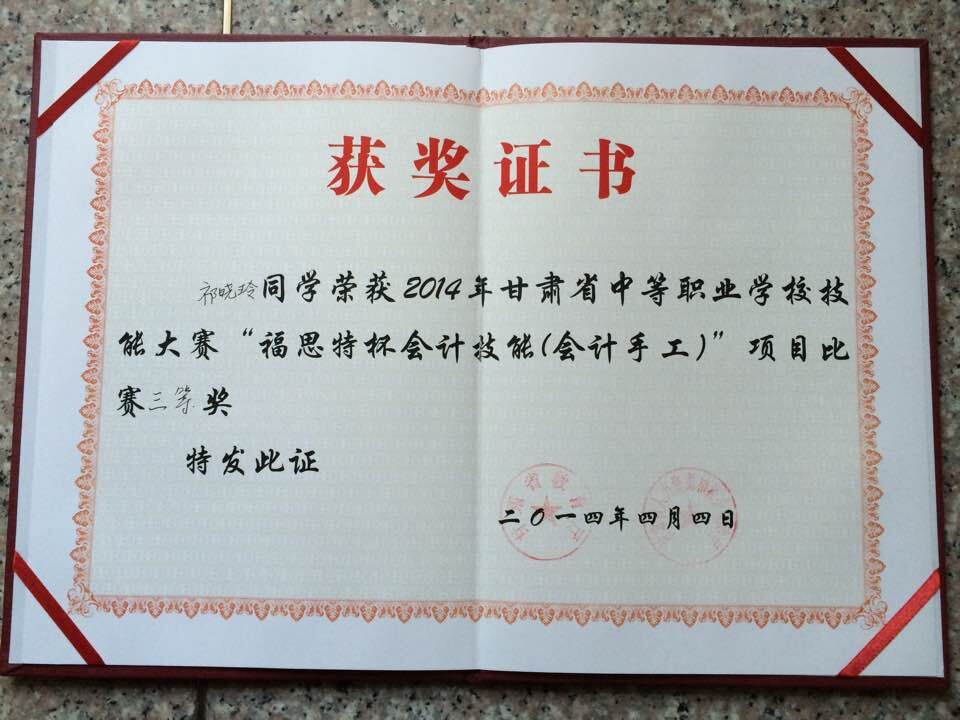 获奖证书
祁晓玲同学荣获2014年甘肃省中等职业学校技
能大赛“福思特杯会计技能(会计手工)”项目比
赛三等奖
特发此证
二〇一四年四月四日